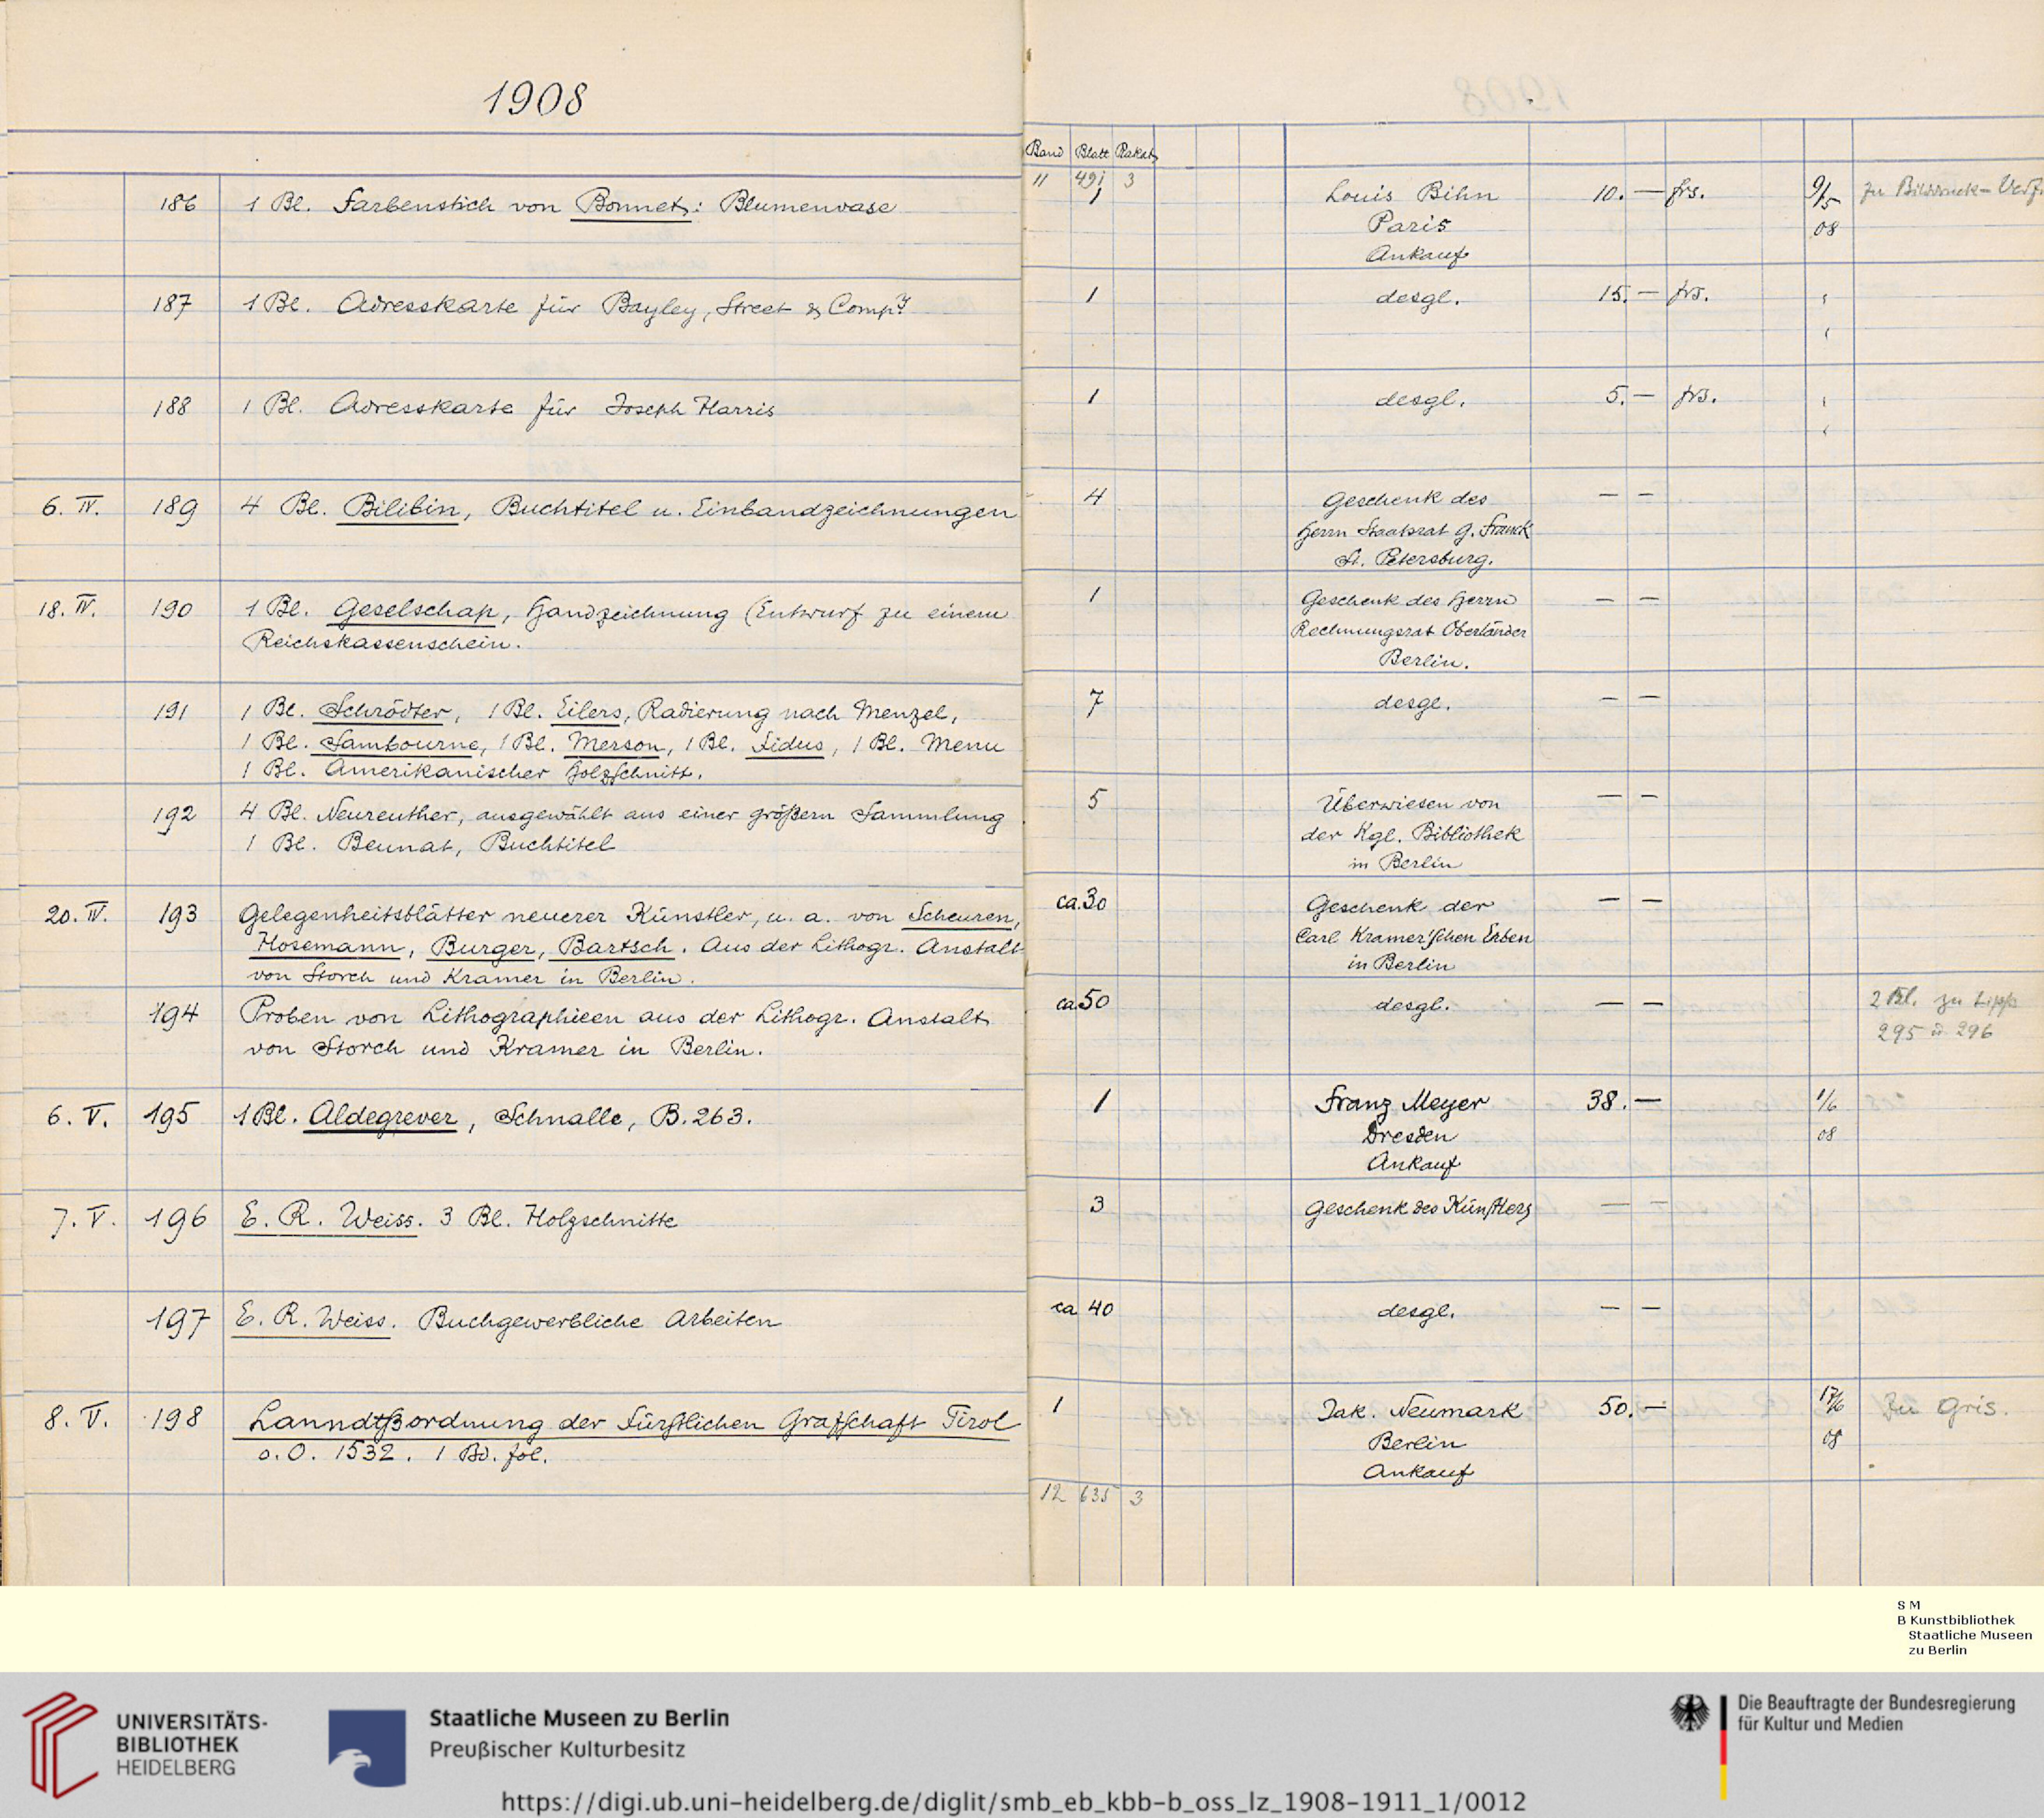 1908
Band Blatt Pakete
11 491 3
186 1 Bl. Farbenstich von Bonnet: Blumenvase 1 Louis Bihn 10.— frs. 9/5
Paris 08
Ankauf
187 1 Bl. Adresskarte für Bayley, Street & Compy 1 desgl. 15.— frs. "
"
188 1 Bl. Adresskarte für Joseph Harris 1 desgl. 5.— frs. "
"
6. IV. 189 4 Bl. Bilibin, Buchtitel u. Einbandzeichnungen 4 Geschenk des — —
Herrn Staatsrat G. Franck
St. Petersburg.
18. IV. 190 1 Bl. Geselschap, Handzeichnung (Entwurf zu einem 1 Geschenk des Herrn — —
Reichskassenschein. Rechnungsrat Oberländer
Berlin.
191 1 Bl. Schrödter, 1 Bl. Eilers, Radierung nach Menzel, 7 desgl. — —
1 Bl. Sambourne, 1 Bl. Merson, 1 Bl. Fidus, 1 Bl. Menu
1 Bl. Amerikanischer Holzschnitt.
192 4 Bl. Neureuther, ausgewählt aus einer größern Sammlung 5 Überwiesen von — —
1 Bl. Beunat, Buchtitel der Kgl. Bibliothek
in Berlin
20. IV. 193 Gelegenheitsblätter neuerer Künstler, u. a. von Scheuren, ca. 30 Geschenk der — —
Hosemann, Burger, Bartsch. Aus der Lithogr. Anstalt Carl Kramer'schen Erben
von Storch und Kramer in Berlin. in Berlin
194 Proben von Lithographieen aus der Lithogr. Anstalt ca. 50 desgl. — — 2 Bl. zu Lipp
von Storch und Kramer in Berlin. 295 u 296
6. V. 195 1 Bl. Aldegrever, Schnalle, B. 263. 1 Franz Meyer 38.— 1/6
Dresden 08
Ankauf
7. V. 196 E. R. Weiss. 3 Bl. Holzschnitte 3 Geschenk des Künstlers — —
197 E. R. Weiss. Buchgewerbliche Arbeiten ca 40 desgl. — —
8. V. 198 Lanndtßordnung der Fürstlichen Grafschaft Tirol 1 Jak. Neumark 50.— 17/6 Zu Gris.
o. O. 1532. 1 Bd. fol. Berlin 08
Ankauf
12 635 3
S M
B Kunstbibliothek
Staatliche Museen
zu Berlin
UNIVERSITÄTS-
BIBLIOTHEK
HEIDELBERG
Staatliche Museen zu Berlin
Preußischer Kulturbesitz
Die Beauftragte der Bundesregierung
für Kultur und Medien
https://digi.ub.uni-heidelberg.de/diglit/smb_eb_kbb-b_oss_lz_1908-1911_1/0012